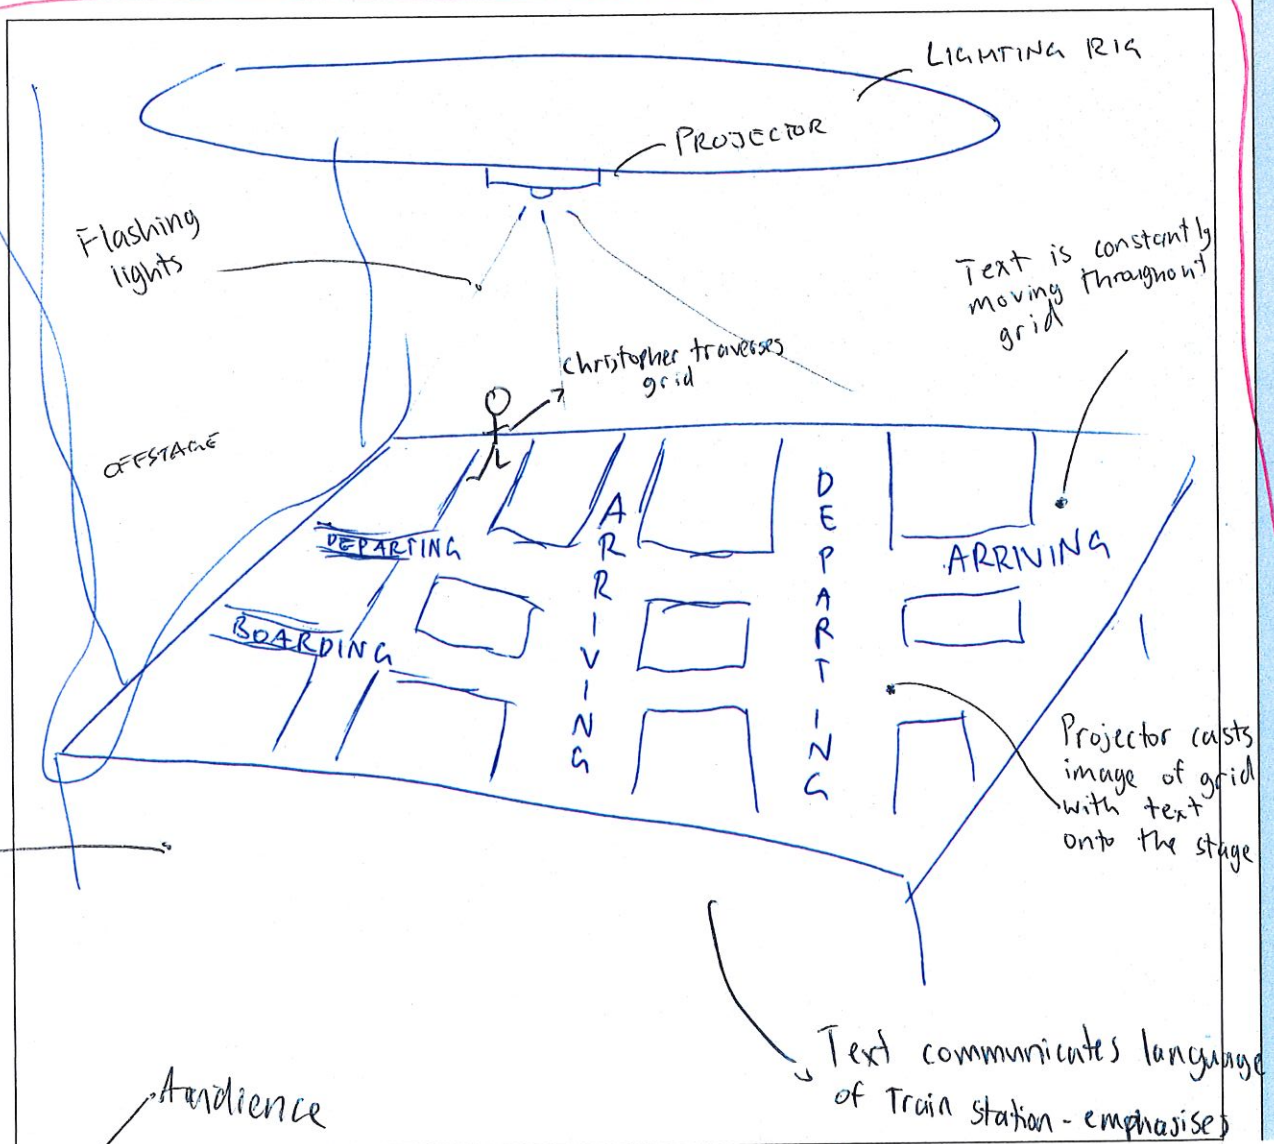 LIGHTING RIG
PROJECTOR
Flashing
lights
Text is constantly
moving throughout
grid
Christopher traverses
grid
OFFSTAGE
DEPARTING
ARRIVING
DEPARTING
ARRIVING
BOARDING
Projector casts
image of grid
with text
onto the stage
Text communicates language
of Train station - emphasises
Audience